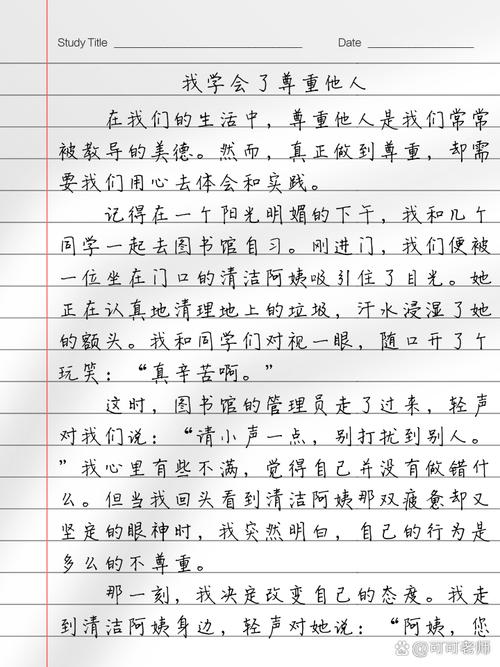 Study Title
Date
我学会了尊重他人
在我们的生活中，尊重他人是我们常常
被教导的美德。然而，真正做到尊重，却需
要我们用心去体会和实践。
记得在一个阳光明媚的下午，我和几个
同学一起去图书馆自习。刚进门，我们便被
一位坐在门口的清洁阿姨吸引住了目光。她
正在认真地清理地上的垃圾，汗水浸湿了她
的额头。我和同学们对视一眼，随口开了个
玩笑：“真辛苦啊。”
这时，图书馆的管理员走了过来，轻声
对我们说：“请小声一点，别打扰到别人。
”我心里有些不满，觉得自己并没有做错什
么。但当我回头看到清洁阿姨那双疲惫却又
坚定的眼神时，我突然明白，自己的行为是
多么的不尊重。
那一刻，我决定改变自己的态度。我走
到清洁阿姨身边，轻声对她说：“阿姨，您
@可可老师